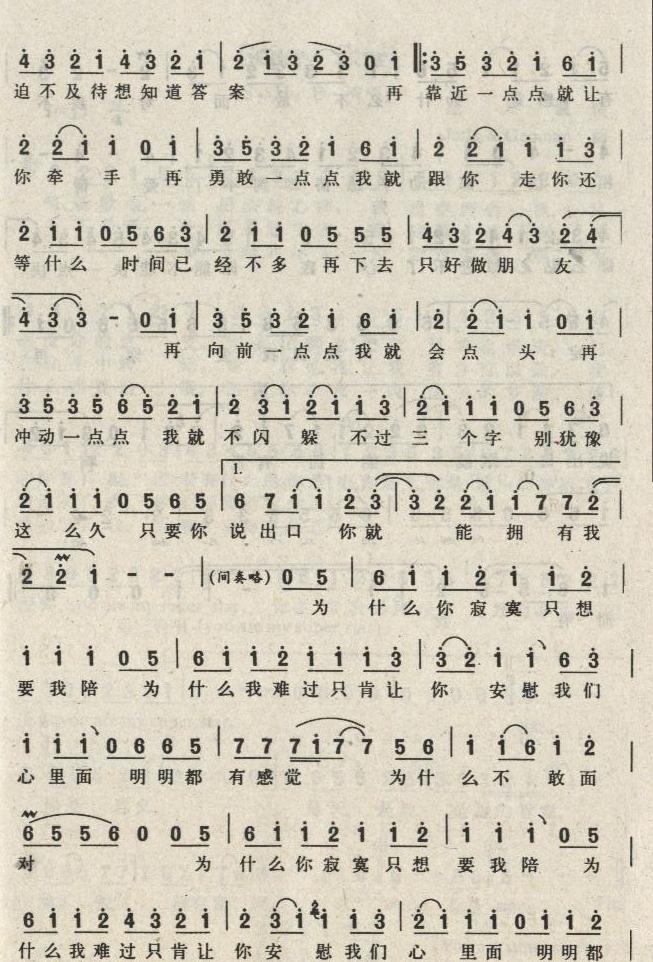 4 3 2 1 4 3 2 1 | 2 1 3 2 3 0 1 ‖: 3 5 3 2 1 6 1 |
迫不及待想知道答 案 再 靠近一点点就让
2 2 1 1 0 1 | 3 5 3 2 1 6 1 | 2 2 1 1 1 3 |
你牵 手 再 勇敢一点点我就 跟你 走你还
2 1 1 0 5 6 3 | 2 1 1 0 5 5 5 | 4 3 2 4 3 2 4
等什么 时间已 经不多 再下去 只好做朋 友
4 3 3 - 0 1 | 3 5 3 2 1 6 1 | 2 2 1 1 0 1 |
再 向前一点点我就 会点 头 再
3 5 3 5 6 5 2 1 | 2 3 1 2 1 1 3 | 2 1 1 1 0 5 6 3 |
冲动一点点 我就 不闪 躲 不过 三 个字 别犹豫
1.
2 1 1 1 0 5 6 5 | 6 7 1 1 2 3 | 3 2 2 1 1 7 7 2
这 么久 只要你 说出口 你就 能 拥 有我
2 2 1 - - | (间奏略) 0 5 | 6 1 1 2 1 1 2 |
为 什么你寂寞只想
1 1 1 0 5 | 6 1 1 2 1 1 1 3 | 3 2 1 1 6 3 |
要我陪 为 什么我难过只肯让 你 安慰我们
1 1 1 0 6 6 5 | 7 7 7 1 7 7 5 6 | 1 1 6 1 2 |
心里面 明明都 有感觉 为什 么不 敢面
6 5 5 6 0 0 5 | 6 1 1 2 1 1 2 | 1 1 1 0 5 |
对 为 什么你寂寞只想 要我陪 为
6 1 1 2 4 3 2 1 | 2 3 1 2 1 1 3 | 2 1 1 1 0 1 1 2 |
什么我难过只肯让 你安 慰我们 心 里面 明明都